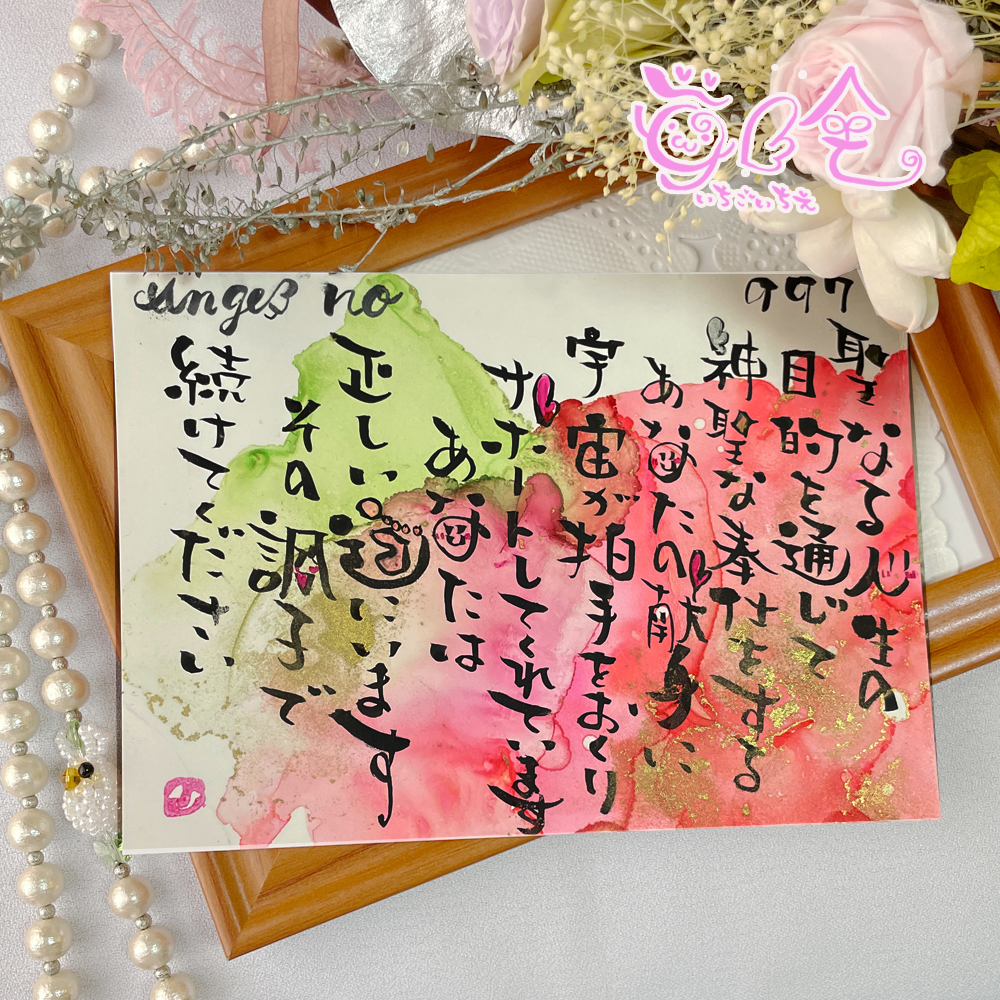 Angel no
997
聖なる人生の
目的を通じて
神聖な奉仕をする
あなたの献身に
宇宙が拍手をおくり
サポートしてくれています
あなたは
正しい道にいます
その調子で
続けてください
いちごいちえ